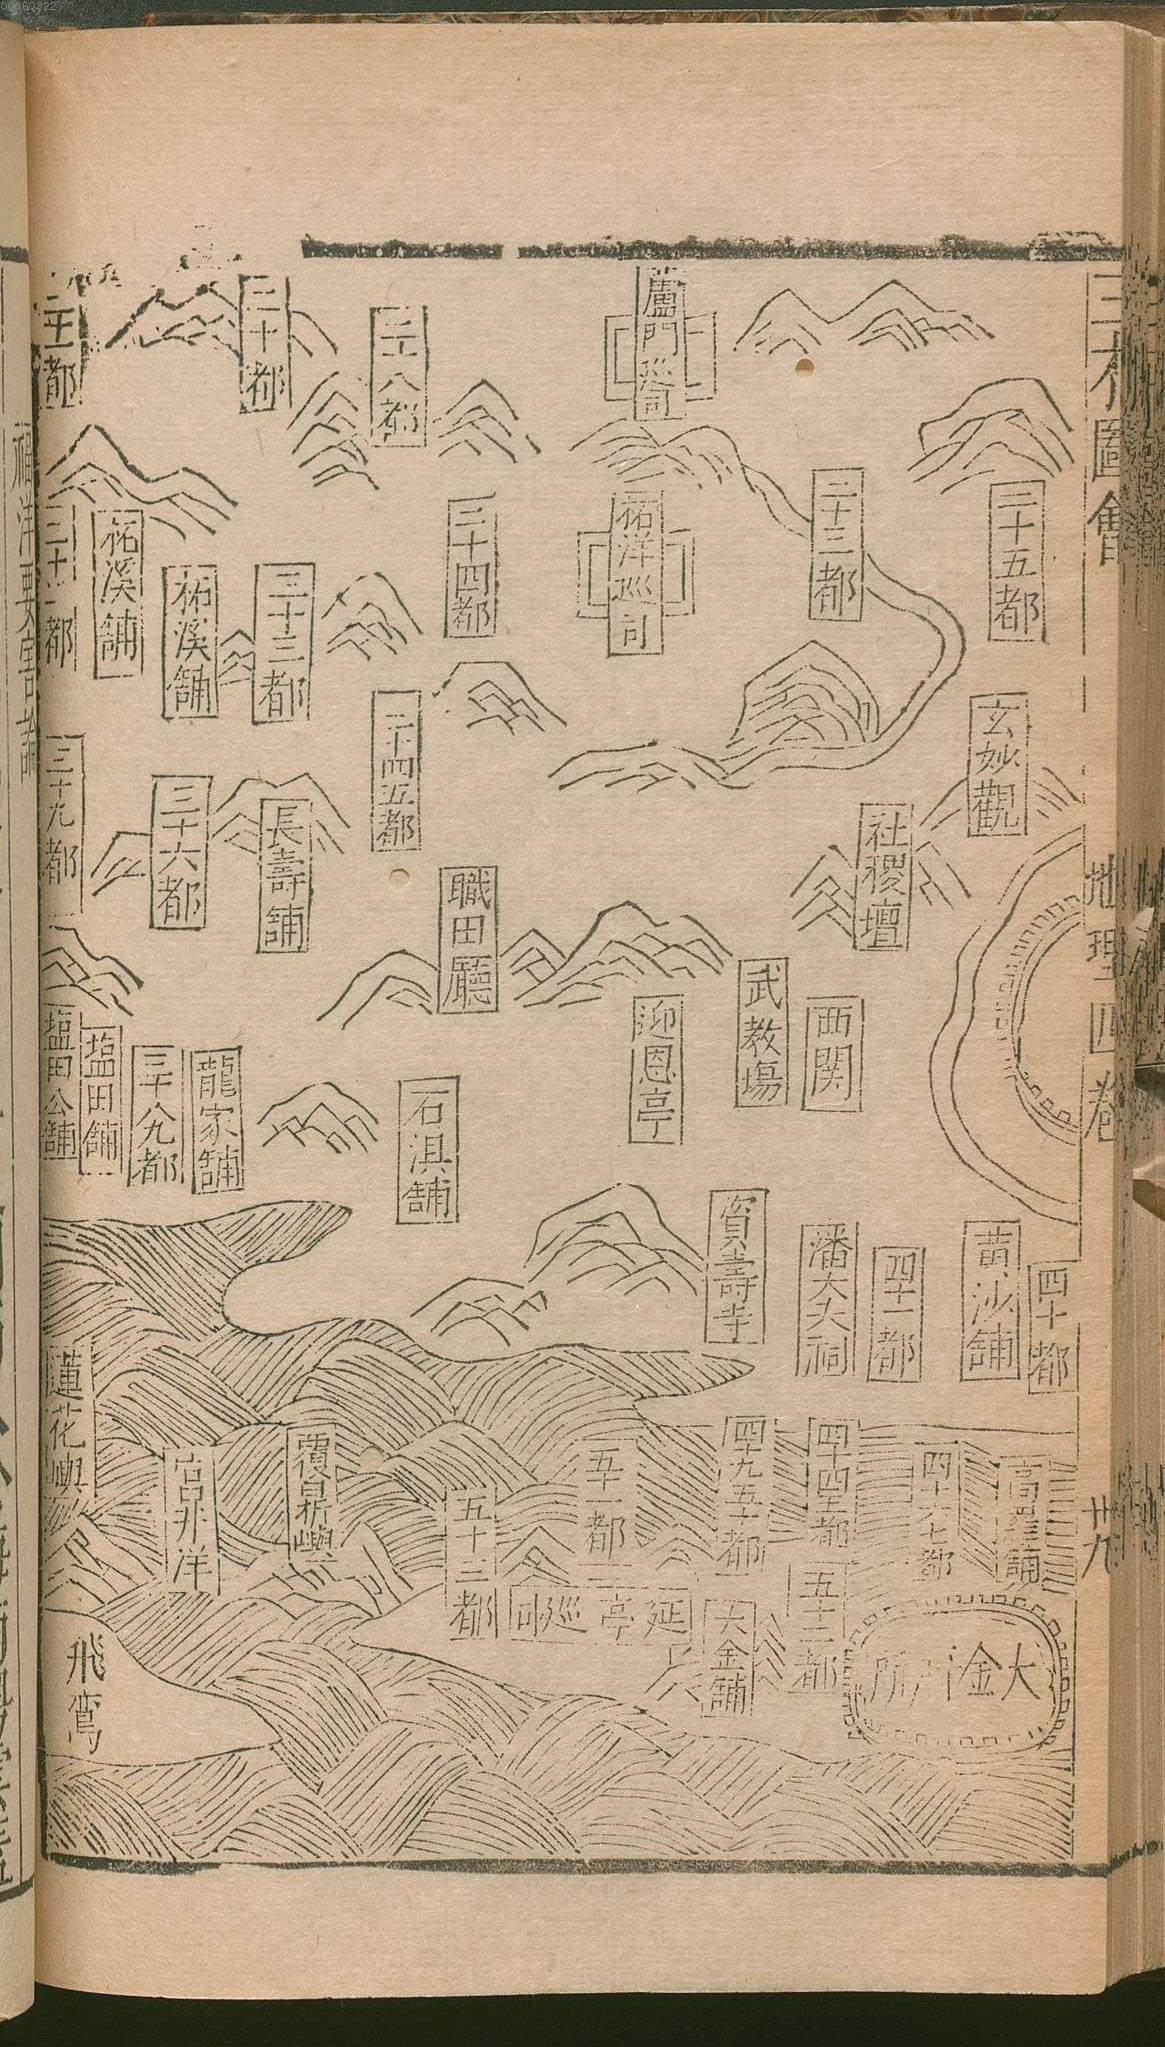 三才圖會
地理四卷
廿九
蘆門巡司
三十都
三十五都
祐洋巡司
三十四都
祐溪舖
祐溪舖
三十三都
玄妙觀
社稷壇
三十四五都
三十九都
三十六都
長壽舖
職田廳
武教塲
西關
迎恩亭
石洪舖
龍家舖
塩田舖
塩田公舖
資壽寺
潘大夫祠
四十一都
黄沙舖
四十都
蓮花嶼
官井洋
覆鼎嶼
五十三都
五十一都
四十九五十都
四十六七都
五十二都
延亭巡司
大金舖
大金千戶所
飛鸞